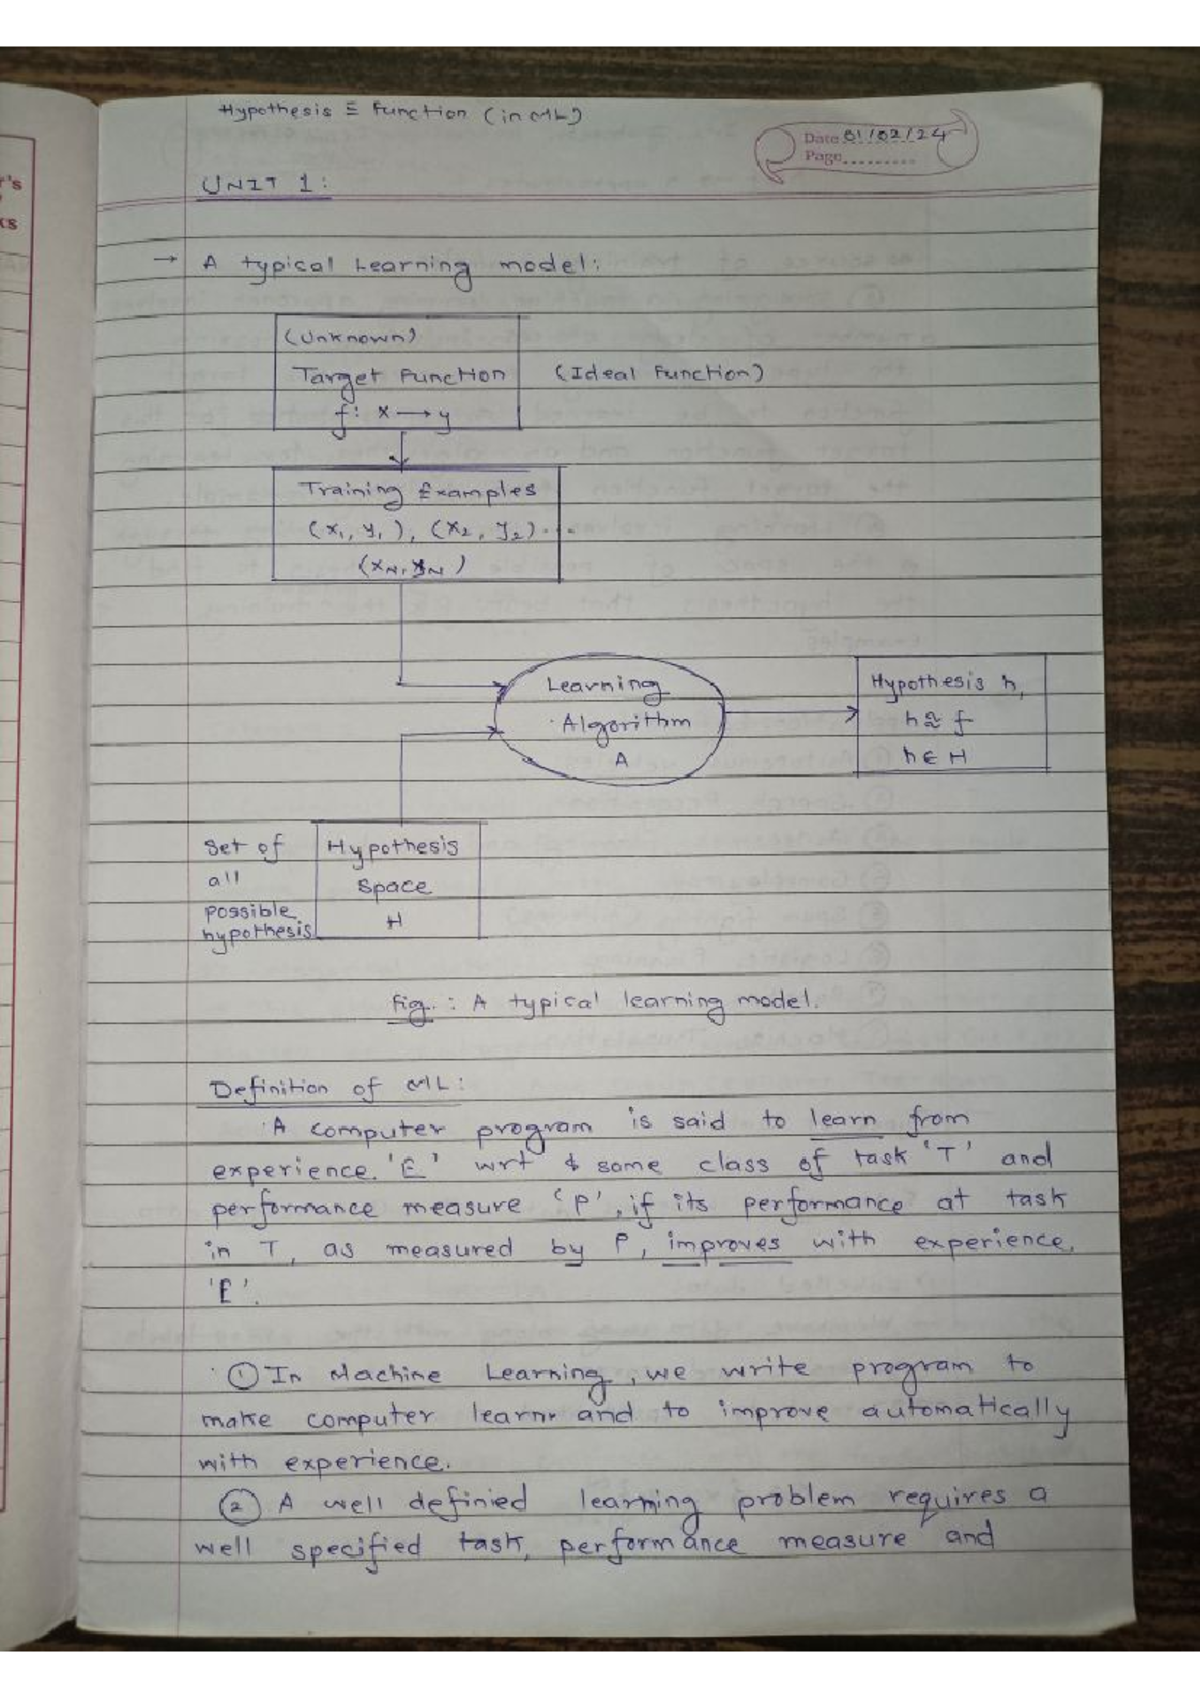 Hypothesis ≡ Function (in ML)
Date 01/02/24
Page.........
UNIT 1:
→ A typical Learning model:
(Unknown)
Target Function (Ideal Function)
f: x → y
Training Examples
(x₁, y₁), (x₂, y₂)....
(xN, yN)
Learning
Algorithm
A
Hypothesis h,
h ≈ f
h ∈ H
Set of
all
possible
hypothesis
Hypothesis
Space
H
Fig. : A typical learning model.
Definition of ML:
A computer program is said to learn from
experience 'E' wrt some class of task 'T' and
performance measure 'P', if its performance at task
in T, as measured by P, improves with experience,
'E'.
① In Machine Learning, we write program to
make computer learn and to improve automatically
with experience.
② A well definied learning problem requires a
well specified task, performance measure and